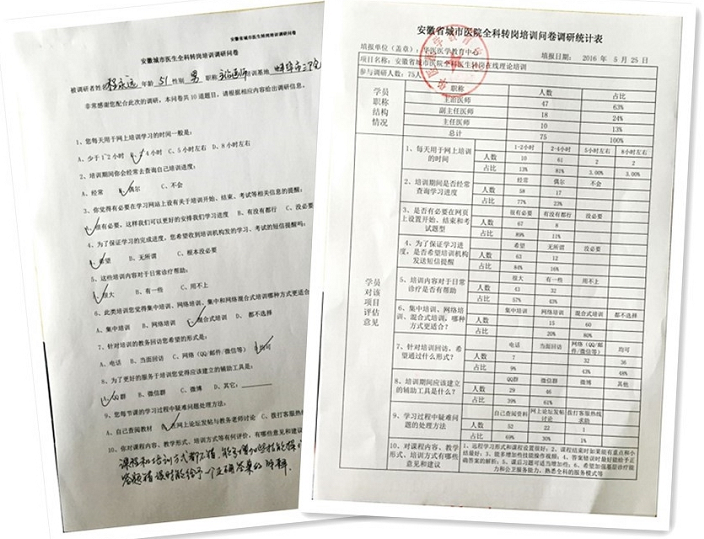 安徽省城市医生全科转岗培训调研问卷
安徽城市医生全科转岗培训调研问卷
年龄 51 性别 男 职称 培训基地
非常感谢您配合此次的调研，本问卷共10道题目，请根据相应内容给出调研信息。
1、您每天用于网上培训学习的时间一般是：
A、少于1-2小时 4小时 C、5小时左右 D、8小时左右
2、培训期间你会经常去查询自己培训进度：
A、经常 偶尔 C、不会
3、你觉得有必要在学习网站上设有关于培训开始、结束、考试等相关信息的提醒：
很有必要，这样我们可以更好的安排我们学习进度 B、有没有都行 C、没必要
4、为了保证学习的完成进度，您希望收到培训机构发的学习、考试的短信提醒吗：
希望 B、无所谓 C、根本没必要
5、这些培训内容对于日常诊疗帮助：
很大 B、有一些 C、用不上
6、此类培训您觉得集中培训、网络培训、集中和网络混合式培训哪种方式更适合
A、集中培训 B、网络培训 混合式培训 D、都不选择
7、针对培训的教务回访您希望的形式是：
A、电话 B、当面回访 C、网络（QQ/邮件/微信等） 均可
8、为了更好的服务于培训您觉得应该建立的辅助工具是：
QQ群 B、微信群 C、微博 D、其它：
9、您每节课的学习过程中疑难问题处理方法：
A、自己查阅教材 网上论坛发帖与教务老师讨论 C、拨打客服热线
10、你对课程内容、教学形式、培训方式等有何评价，有哪些意见和建议
课程和培训方式都不错，
安徽省城市医院全科转岗培训问卷调研统计表
填报单位（盖章）：华医医学教育中心 填报日期： 2016 年 5 月 25 日
项目名称：安徽省城市医院全科医生转岗在线理论培训
参与调研人数：75人
学员职称结构情况 职称 人数 占比
主治医师 47 63%
副主任医师 18 24%
主任医师 10 13%
总计 75 100%
学员对该项目评估意见
1、每天用于网上培训的时间 1-2小时 2-4小时 5小时左右 8小时左右
人数 10 61 2 2
占比 13% 81% 3.00% 3.00%
2、培训期间是否经常查询学习进度 经常 偶尔 不会
人数 58 17
占比 77% 23%
3、是否有必要在网页上设置开始、结束和考试题型 很有必要 有没有都行 没必要
人数 67 8
占比 89% 11%
4、为了保证学习进度，是否希望培训机构发送短信提醒 希望 无所谓 没必要
人数 63 12
占比 84% 16%
5、培训内容对于日常诊疗是否有帮助 很大 有一些 用不上
人数 43 32
占比 57% 43%
6、集中培训、网络培训、混合式培训，哪种方式更适合？ 集中培训 网络培训 混合式培训 都不选择
人数 15 60
占比 20% 80%
7、针对培训回访，希望通过什么形式？ 电话 当面回访 网络（QQ/邮件/微信等） 均可
人数 7 32 36
占比 9% 43% 48%
8、培训期间应该建立的辅助工具是什么？ QQ群 微信群 微博 其他
人数 29 46
占比 39% 61%
9、学习过程中疑难问题的处理方法 自己查阅资料 网上论坛发帖讨论 拨打客服热线求助
人数 52 22 1
占比 69% 30% 1%
10、对课程内容、教学形式、培训方式有哪些意见和建议 1、远程学习形式和课程设置很好；2、课程结束时如果能有重点和小结最好；3、能多增加些技能操作视频；4、答案错误时最好能给予正确答案的解析；5、课后习题可适当增加些；6、希望加强基层诊疗能力和公卫服务能力，熟悉全科的服务模式等